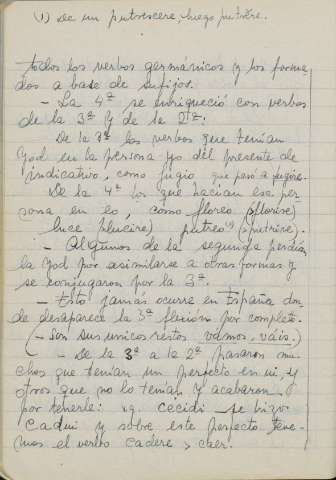 (1) de un putrescere, luego putrēre.
todos los verbos germánicos y los forma-
dos a base de sufijos.
- La 4ª se enriqueció con verbos
de la 3ª y de la 2ª:
De la 3ª los verbos que tenían
yod en la persona yo del presente de
indicativo, como fugio que pasó a fugire.
De la 4ª los que hacían esa per-
sona en eo, como floreo (florire)
luce (lucire) putreo(1) (putrire).
- Algunos de la segunda perdían
la yod por asimilarse a otras formas y
se conjugaron por la 3ª.
- Esto jamás ocurre en España don-
de desaparece la 3ª flexión por completo.
(- Son sus unicos restos vamos, vais.)
- De la 3ª a la 2ª pasaron mu-
chos que tenían un perfecto en ui, y
otros que no lo tenían y acabaron
por tenerle: v.g. cecidi se hizo
cadui y sobre este perfecto tene-
mos el verbo cadere > caer.